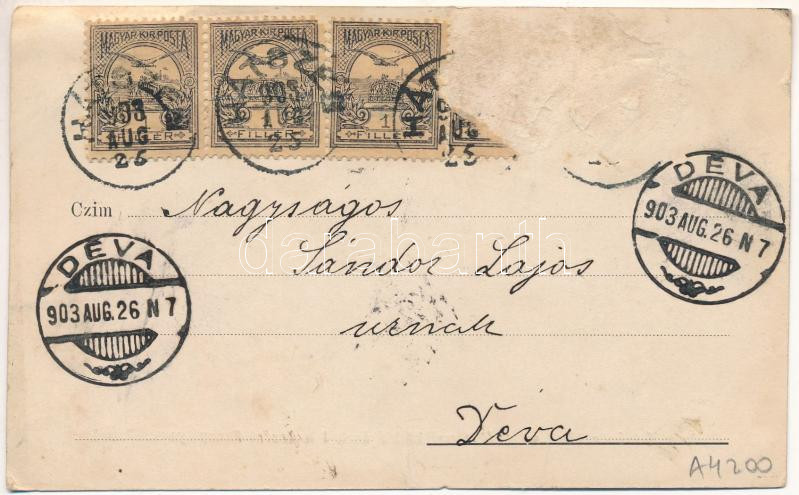 MAGYAR KIR. POSTA MAGYAR KIR. POSTA MAGYAR KIR. POSTA
903 903
1 1
AUG AUG
FILLER FILLER FILLER
25 25 25
DÉVA
903 AUG. 26 N 7
Czim Nagyságos
Sándor Lajos
DÉVA
903 AUG. 26 N 7
urnak
Déva
A4200
darabanth